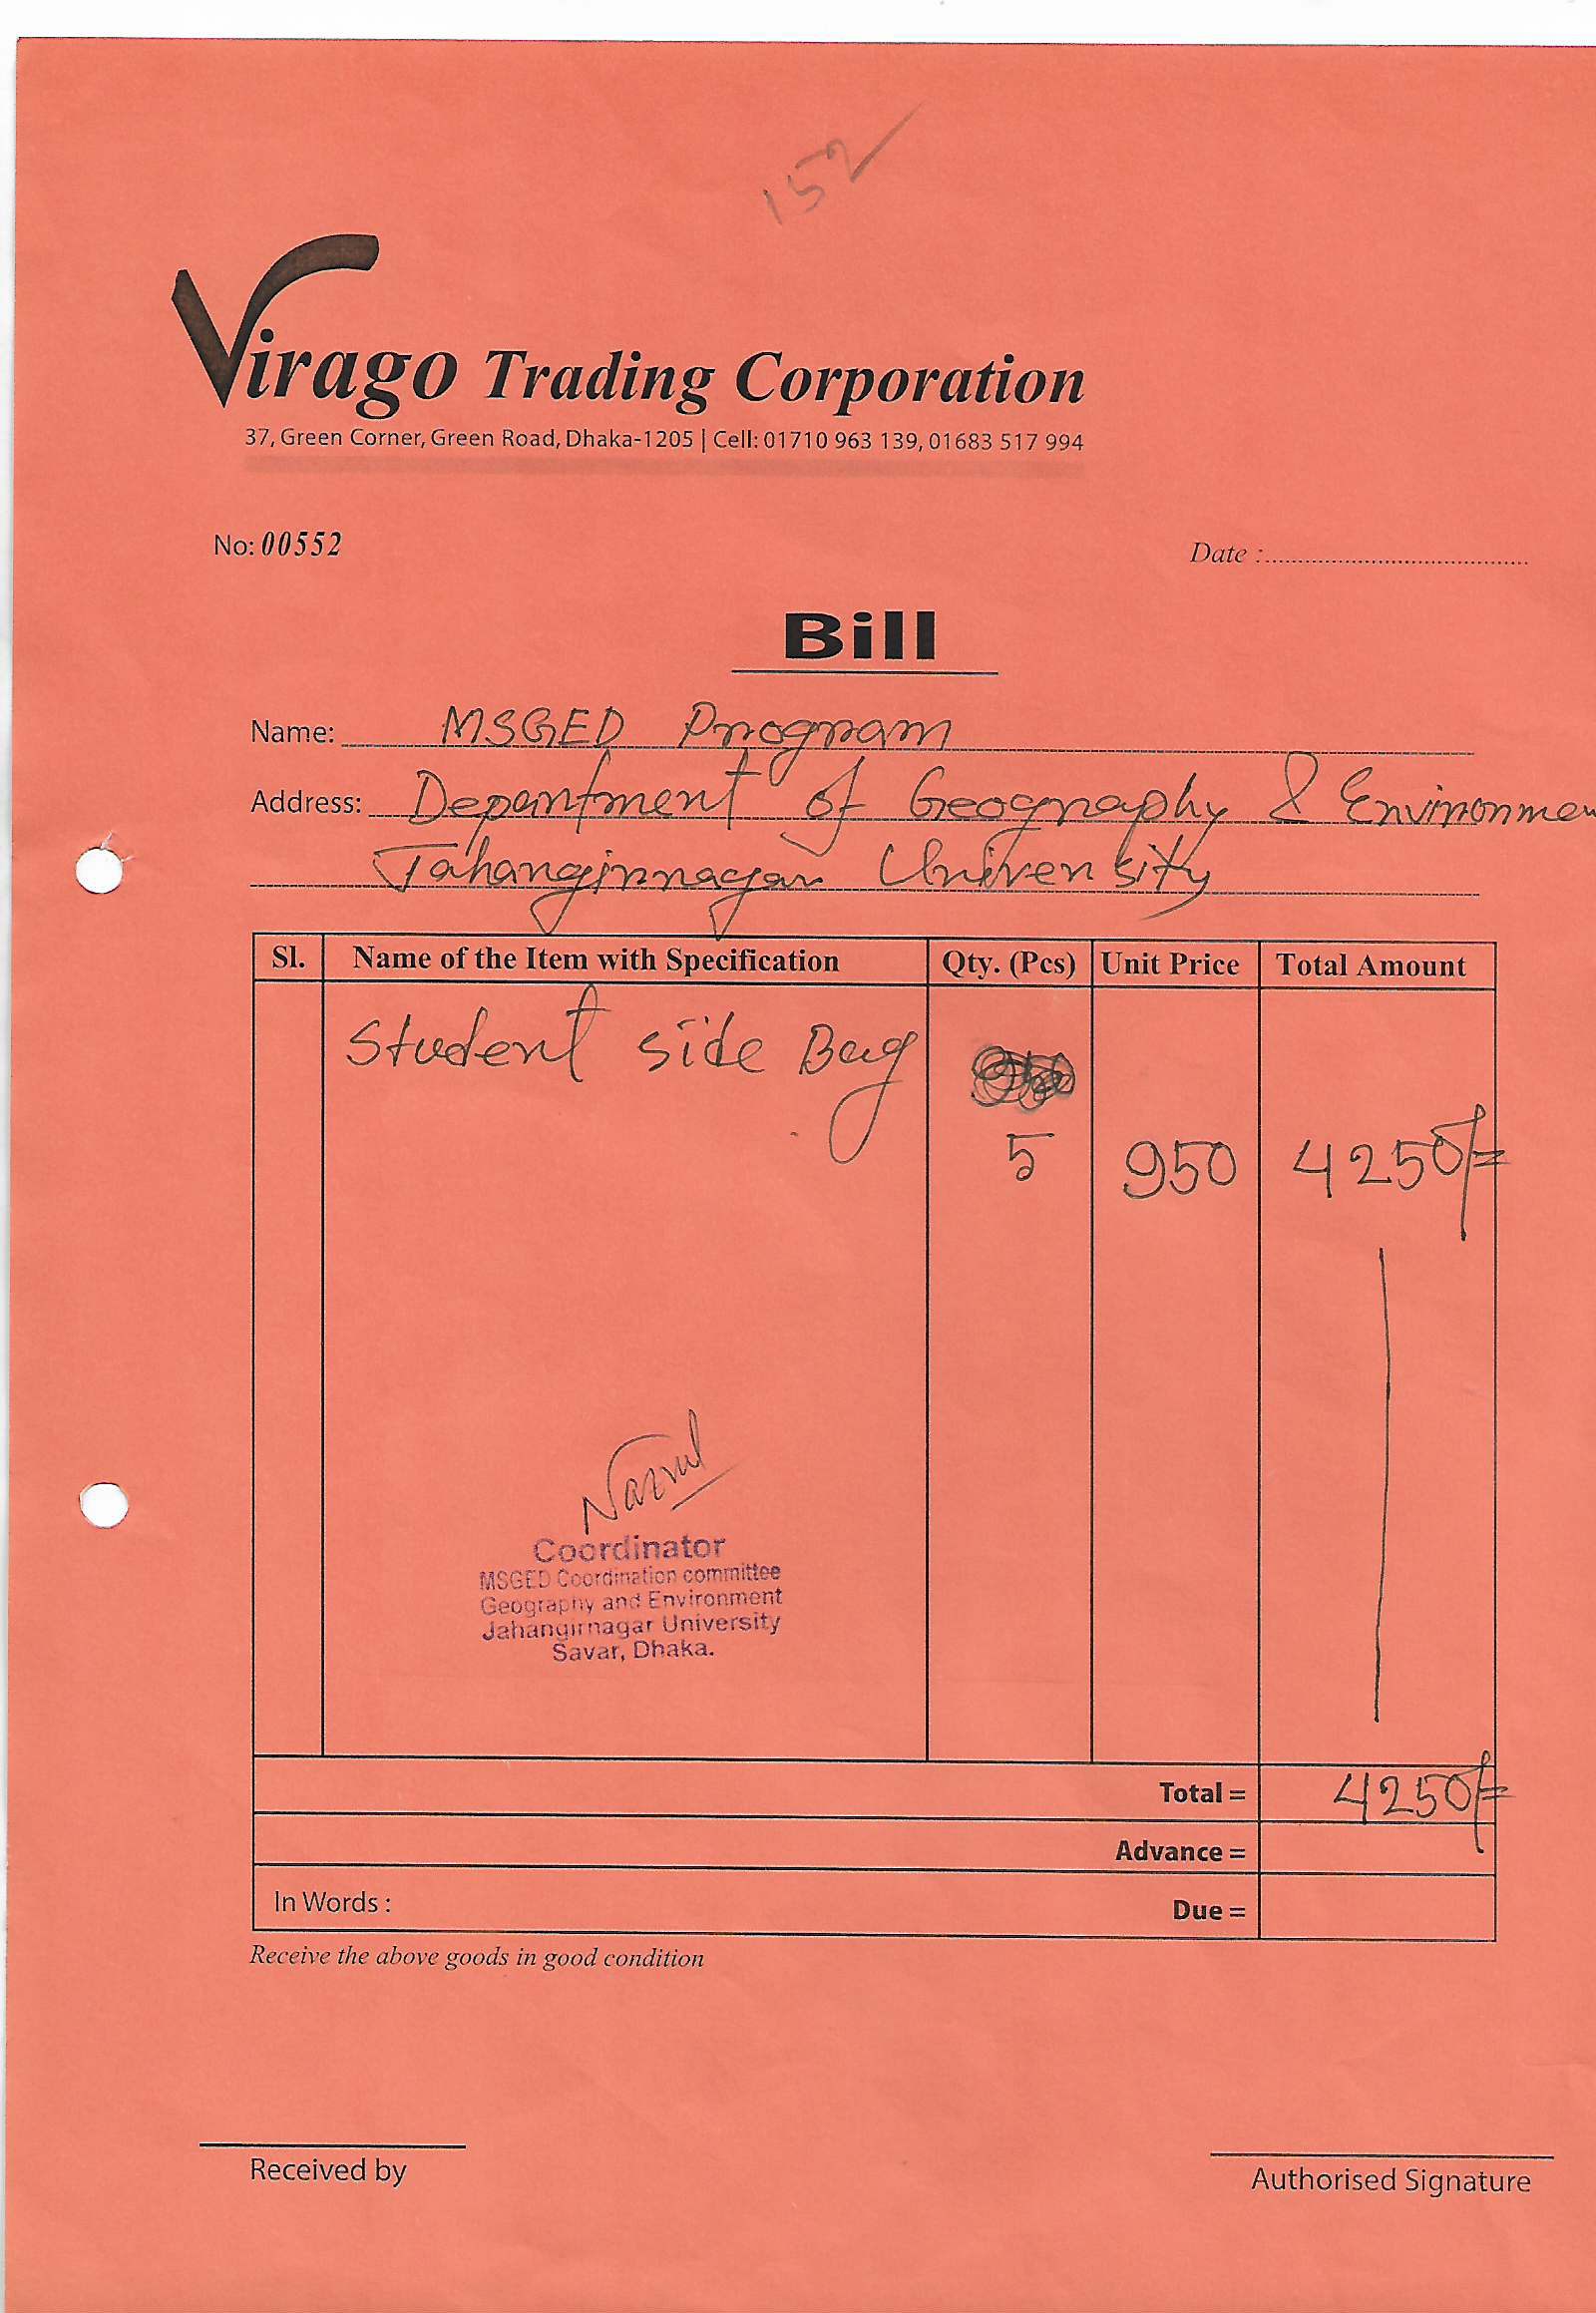 152
Virago Trading Corporation
37, Green Corner, Green Road, Dhaka-1205 | Cell: 01710 963 139, 01683 517 994
No: 00552 Date :
Bill
Name: MSGED Program
Address: Department of Geography & Environmen
Jahangirnagar University
Sl. Name of the Item with Specification Qty. (Pcs) Unit Price Total Amount
Student side Bag
5 950 4250/=
Nazrul
Coordinator
MSGED Coordination committee
Geography and Environment
Jahangirnagar University
Savar, Dhaka.
Total = 4250/=
Advance =
In Words : Due =
Receive the above goods in good condition
Received by Authorised Signature